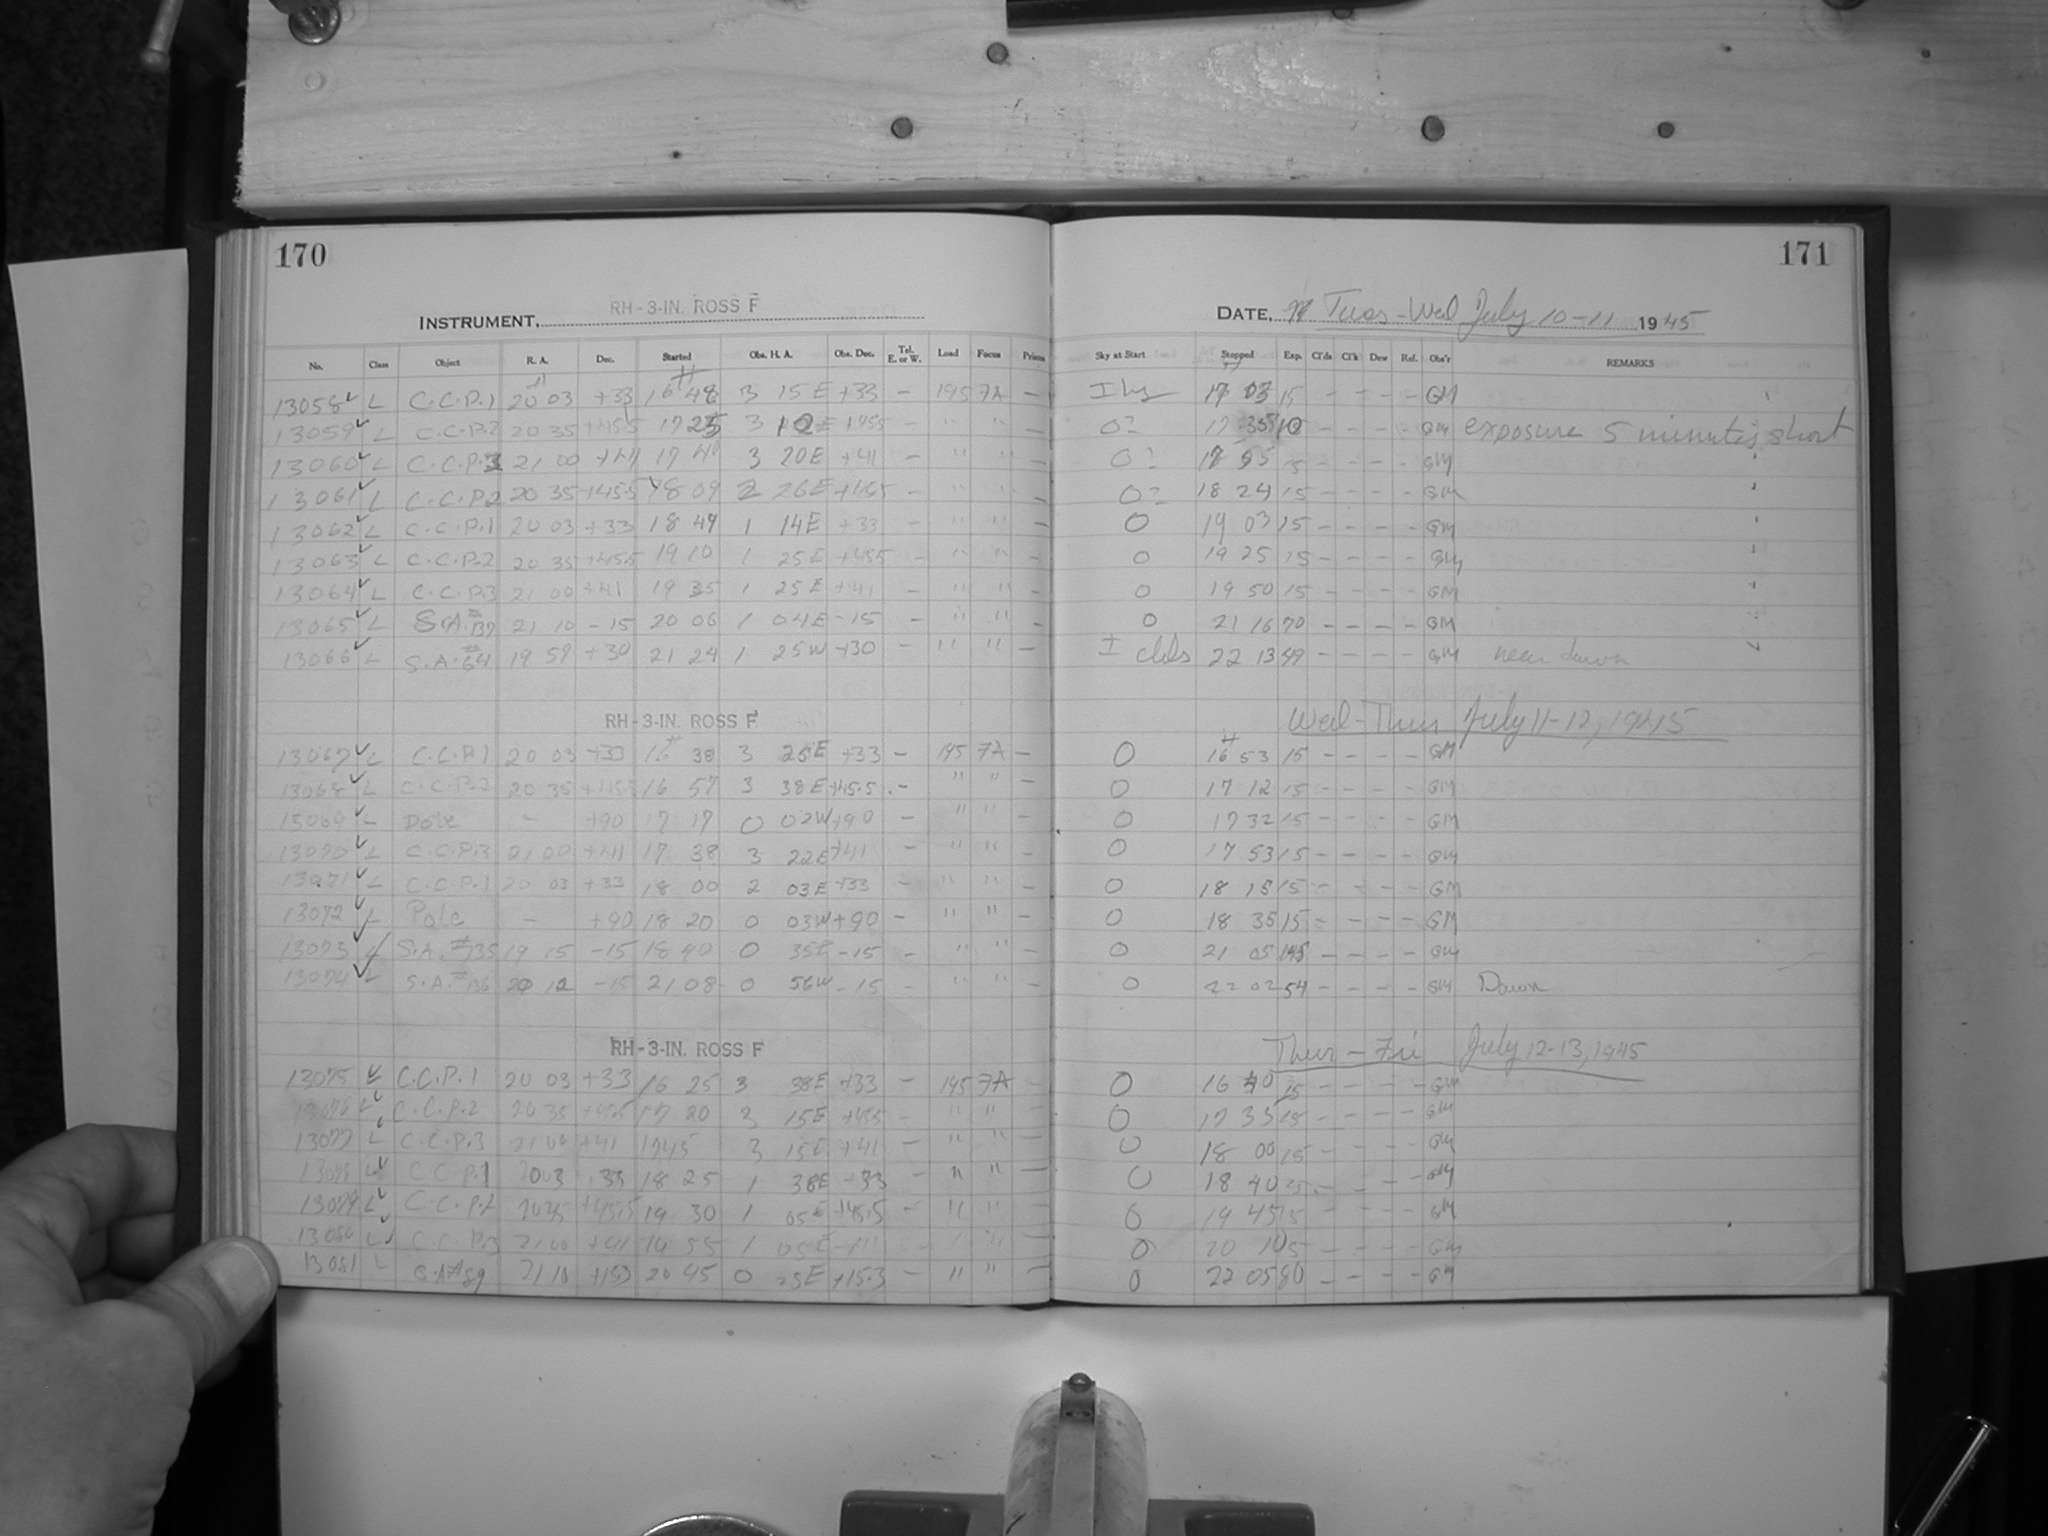 170
171
INSTRUMENT, RH-3-IN. ROSS F
DATE, Tues-Wed July 10-11 1945
No. Class Object R. A. Dec. Started Obs. H. A. Obs. Dec. Tel. E. or W. Load Focus Prism Sky at Start Stopped Exp. Cl'ds Cl'k Dew Ref. Obs'r REMARKS
13058 L C.C.P.1 20 03 +33 16 48 3 15E +33 - 195 7A - 17 03 15 - - - - GM
13059 L C.C.P.2 20 35 +45.5 17 25 3 10E +45.5 " " - 0? 17 35 10 - - - - GM exposure 5 minutes short
13060 L C.C.P.3 21 00 +41 17 40 3 20E +41 - " " - 0? 17 55 15 - - - - GM
13061 L C.C.P.2 20 35 +45.5 18 09 2 26E +45.5 - " " - 0? 18 24 15 - - - - GM
13062 L C.C.P.1 20 03 +33 18 49 1 14E +33 - " " - 0 19 03 15 - - - - GM
13063 L C.C.P.2 20 35 +45.5 19 10 1 25E +45.5 - " " - 0 19 25 15 - - - - GM
13064 L C.C.P.3 21 00 +41 19 35 1 25E +41 - " " - 0 19 50 15 - - - - GM
13065 L S.A.# 21 10 -15 20 06 1 04E -15 - " " - 0 21 16 70 - - - - GM
13066 L S.A.#64 19 59 +30 21 24 1 25W +30 - " " - I clds 22 13 49 - - - - GM near dawn
RH-3-IN. ROSS F
Wed-Thur July 11-12, 1945
13067 L C.C.P.1 20 03 +33 16 38 3 25E +33 - 195 7A - 0 16 53 15 - - - - GM
13068 L C.C.P.2 20 35 +45.5 16 57 3 38E +45.5 - " " 0 17 12 15 - - - - GM
13069 L Pole - +90 17 17 0 02W +90 - " " - 0 17 32 15 - - - - GM
13070 L C.C.P.3 21 00 +41 17 38 3 22E +41 - " " - 0 17 53 15 - - - - GM
13071 L C.C.P.1 20 03 +33 18 00 2 03E +33 - " " - 0 18 15 15 - - - - GM
13072 L Pole - +90 18 20 0 03W +90 - " " - 0 18 35 15 - - - - GM
13073 L S.A.#135 19 15 -15 18 40 0 35E -15 - " " - 0 21 05 145 - - - - GM
13074 L S.A.#136 20 12 -15 21 08 0 56W -15 - " " - 0 22 02 54 - - - - GM Dawn
RH-3-IN. ROSS F
Thur-Fri July 12-13, 1945
13075 L C.C.P.1 20 03 +33 16 25 3 38E +33 - 195 7A - 0 16 40 15 - - - - GM
13076 L C.C.P.2 20 35 +45.5 17 20 3 15E +45.5 - " " - 0 17 35 15 - - - - GM
13077 L C.C.P.3 21 00 +41 17 45 3 15E +41 - " " - 0 18 00 15 - - - - GM
13078 L C.C.P.1 20 03 +33 18 25 1 38E +33 - " " - 0 18 40 - - - GM
13079 L C.C.P.2 20 35 +45.5 19 30 1 05E +45.5 - " " - 0 19 45 15 - - - - GM
13080 L C.C.P.3 21 00 +41 19 55 1 05E +41 - " " - 0 20 10 15 - - - - GM
13081 L S.A.#89 21 10 +15.3 20 45 0 25E +15.3 - " " - 0 22 05 80 - - - - GM